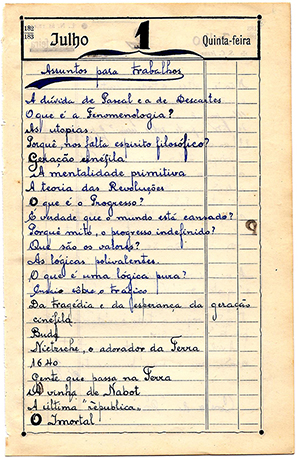 182
183
Julho 1 Quinta-feira
Assuntos para trabalhos
A dúvida de Pascal e a de Descartes
O que é a Fenomenologia?
As utopias
Porquê, nos falta espírito filosófico?
Geração cinéfila
A mentalidade primitiva
A teoria das Revoluções
O que é o Progresso?
É verdade que o mundo está cansado?
Porquê mito, o progresso indefinido?
Que são os valores?
As lógicas polivalentes.
O que é uma lógica pura?
Ensaio sôbre o trágico
Da tragédia e da esperança da geração
cinéfila.
Buda
Nietzsche, o adorador da Terra
1640
Gente que passa na Terra
A vinha de Nabot
A última "república"
O Imortal